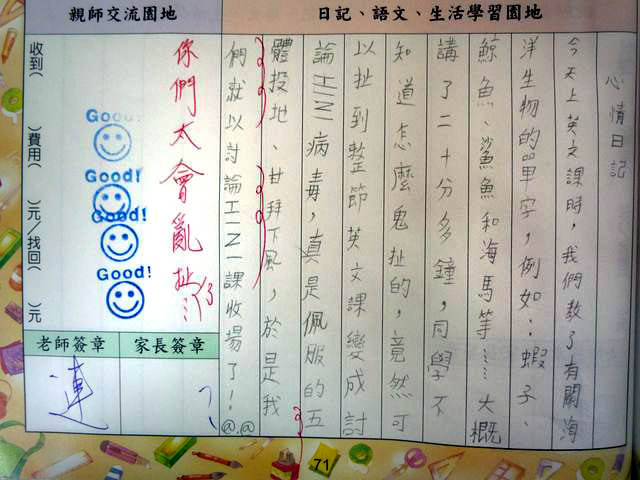 日記、語文、生活學習園地
心情日記
今天上英文課時，我們教了有關海
洋生物的單字，例如：蝦子、
鯨魚、鯊魚和海馬等……大概
講了二十分多鐘，同學不
知道怎麼鬼扯的，竟然可
以扯到整節英文課變成討
論H1N1病毒，真是佩服的五
體投地、甘拜下風，於是我
們就以討論H1N1課收場了！@.@
親師交流園地
你們太會亂扯
Good!
Good!
Good!
Good!
收到( )費用( )元/找回( )元
老師簽章
家長簽章
連
71